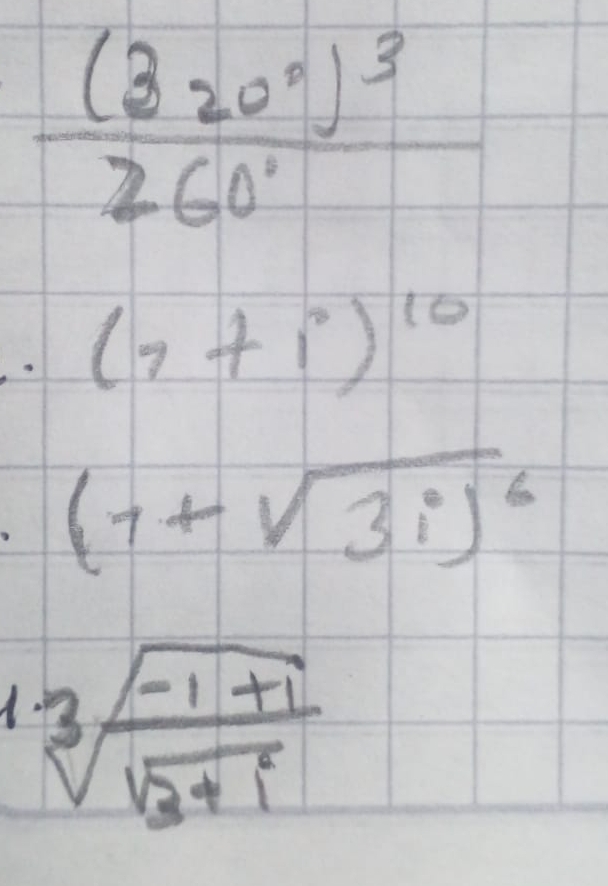 (3 20°)³
260°
(1 + i)¹⁰
(1 + √3i)⁶
³√-1 + i
√3 + i